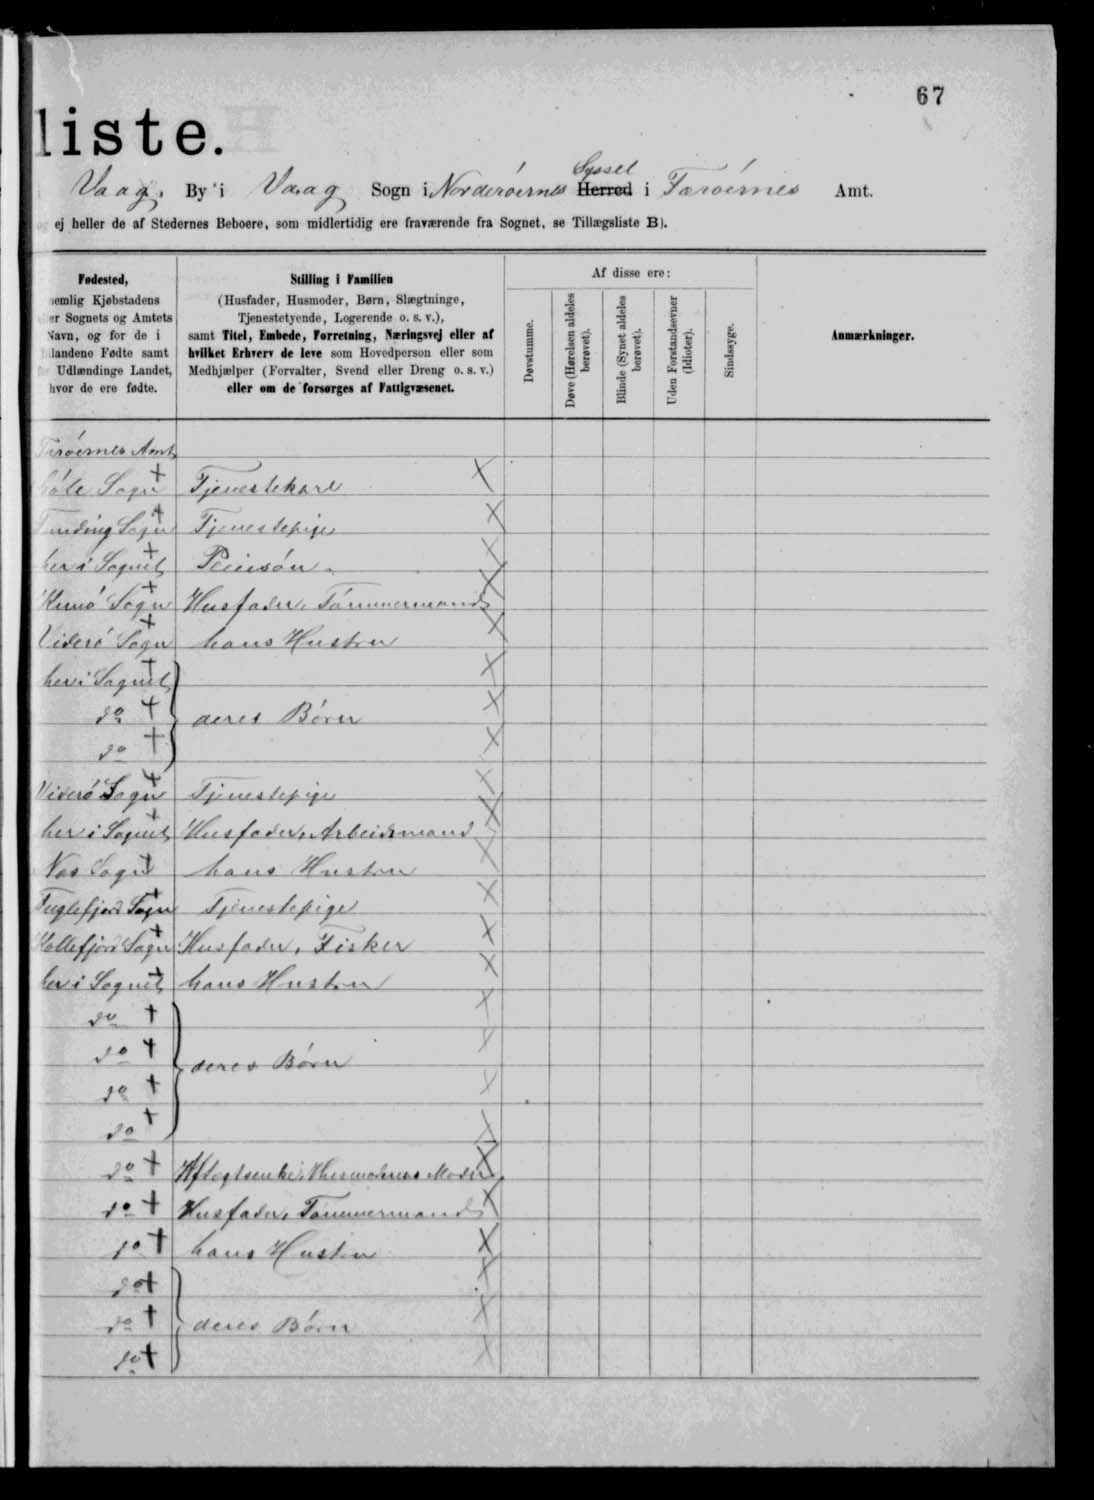 67
liste.
Vaag. By i Vaag Sogn i Norderöernes Syssel Herred i Færöernes Amt.
ej heller de af Stedernes Beboere, som midlertidig ere fraværende fra Sognet, se Tillægsliste B).
Fødested,
nemlig Kjøbstadens
er Sognets og Amtets
Navn, og for de i
landene Fødte samt
Udlændinge Landet,
hvor de ere fødte.
Stilling i Familien
(Husfader, Husmoder, Børn, Slægtninge,
Tjenestetyende, Logerende o. s. v.),
samt Titel, Embede, Forretning, Næringsvej eller af
hvilket Erhverv de leve som Hovedperson eller som
Medhjælper (Forvalter, Svend eller Dreng o. s. v.)
eller om de forsørges af Fattigvæsenet.
Af disse ere:
Døvstumme.
Døve (Hørelsen aldeles berøvet).
Blinde (Synet aldeles berøvet).
Uden Forstandsevner (Idioter).
Sindssyge.
Anmærkninger.
Færöernes Amt
Sogn Tjenestekarl
Funding Sogn Tjenestepige
her i Sognet Pleiesön
Kunö Sogn Husfader, Tömmermand
Viderö Sogn hans Hustru
her i Sognet
do deres Börn
do
Viderö Sogn Tjenestepige
her i Sognet Husfader, Arbeidsmand
Næs Sogn hans Hustru
Fuglefjord Sogn Tjenestepige
Kollefjord Sogn Husfader, Fisker
her i Sognet hans Hustru
do
do deres Börn
do
do
do Aftægtsenke, Husmoderens Moder
do Husfader, Tömmermand
do hans Hustru
do
do deres Börn
do